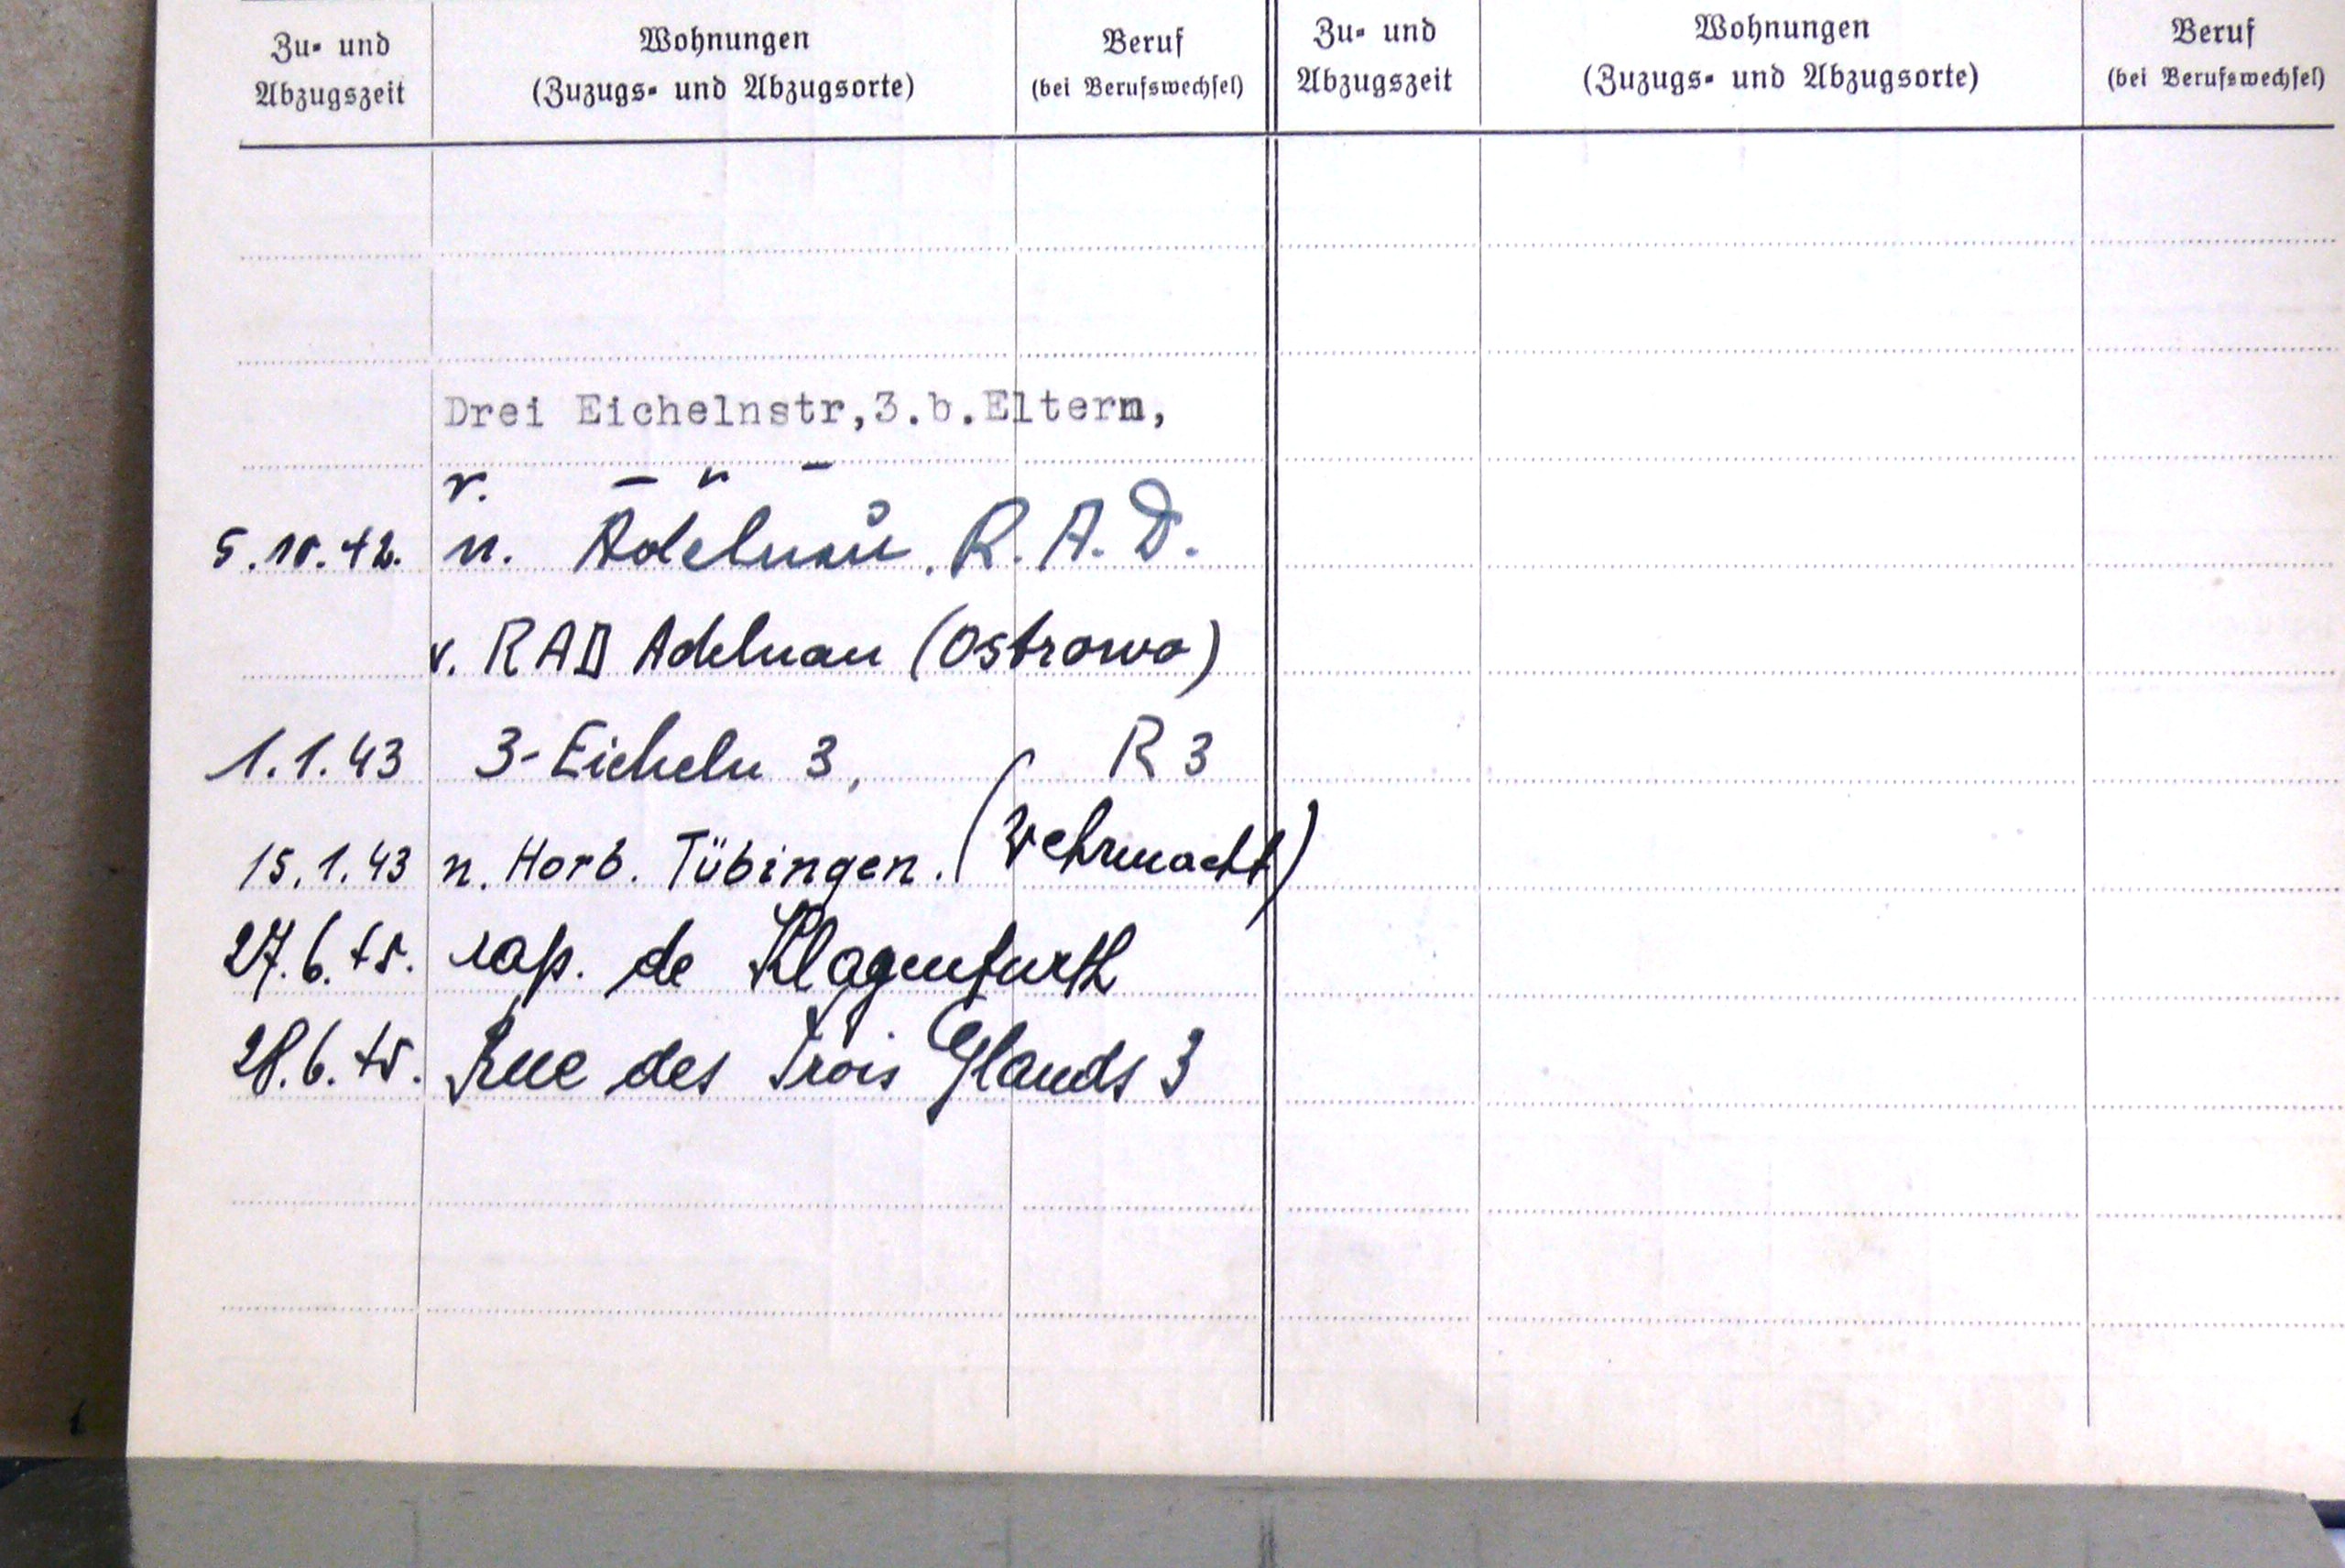 Zu- und Wohnungen Beruf Zu- und Wohnungen Beruf
Abzugszeit (Zuzugs- und Abzugsorte) (bei Berufswechsel) Abzugszeit (Zuzugs- und Abzugsorte) (bei Berufswechsel)
Drei Eichelnstr,3.b.Eltern,
v. — " —
5.10.42. n. Adelnau. R.A.D.
v. RAD Adelnau (Ostrowo)
1.1.43 3-Eicheln 3, R 3
15.1.43 n. Horb. Tübingen. (Wehrmacht)
27.6.45. rap. de Klagenfurth
28.6.45. Rue des Trois Glands 3